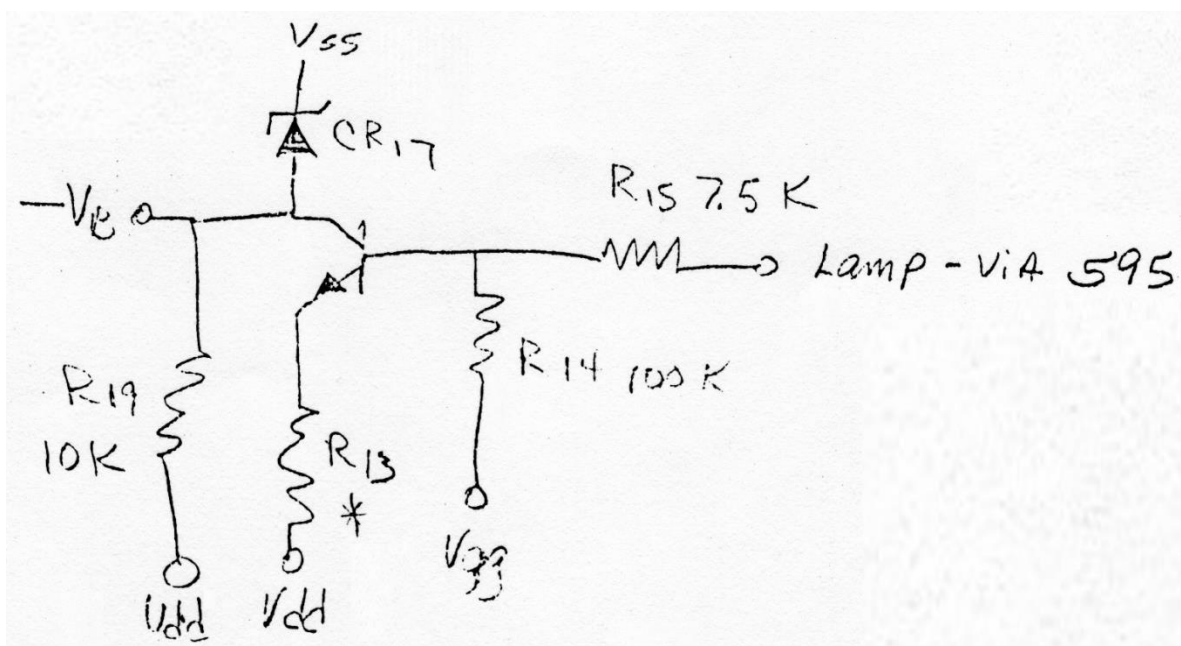 Vss
CR17
R15 7.5 K
Lamp - ViA 595
R14 100 K
R19
10K
R13
*
Vdd
Vdd